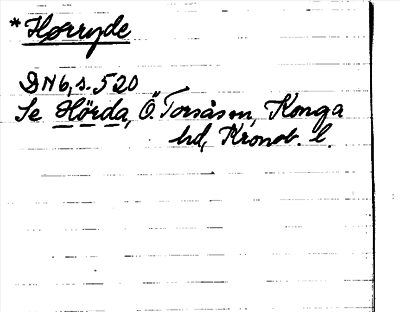 *Hørryde
DN6, s. 520
Se Hörda, Ö. Torsås sn, Konga
hd, Kronob. l.